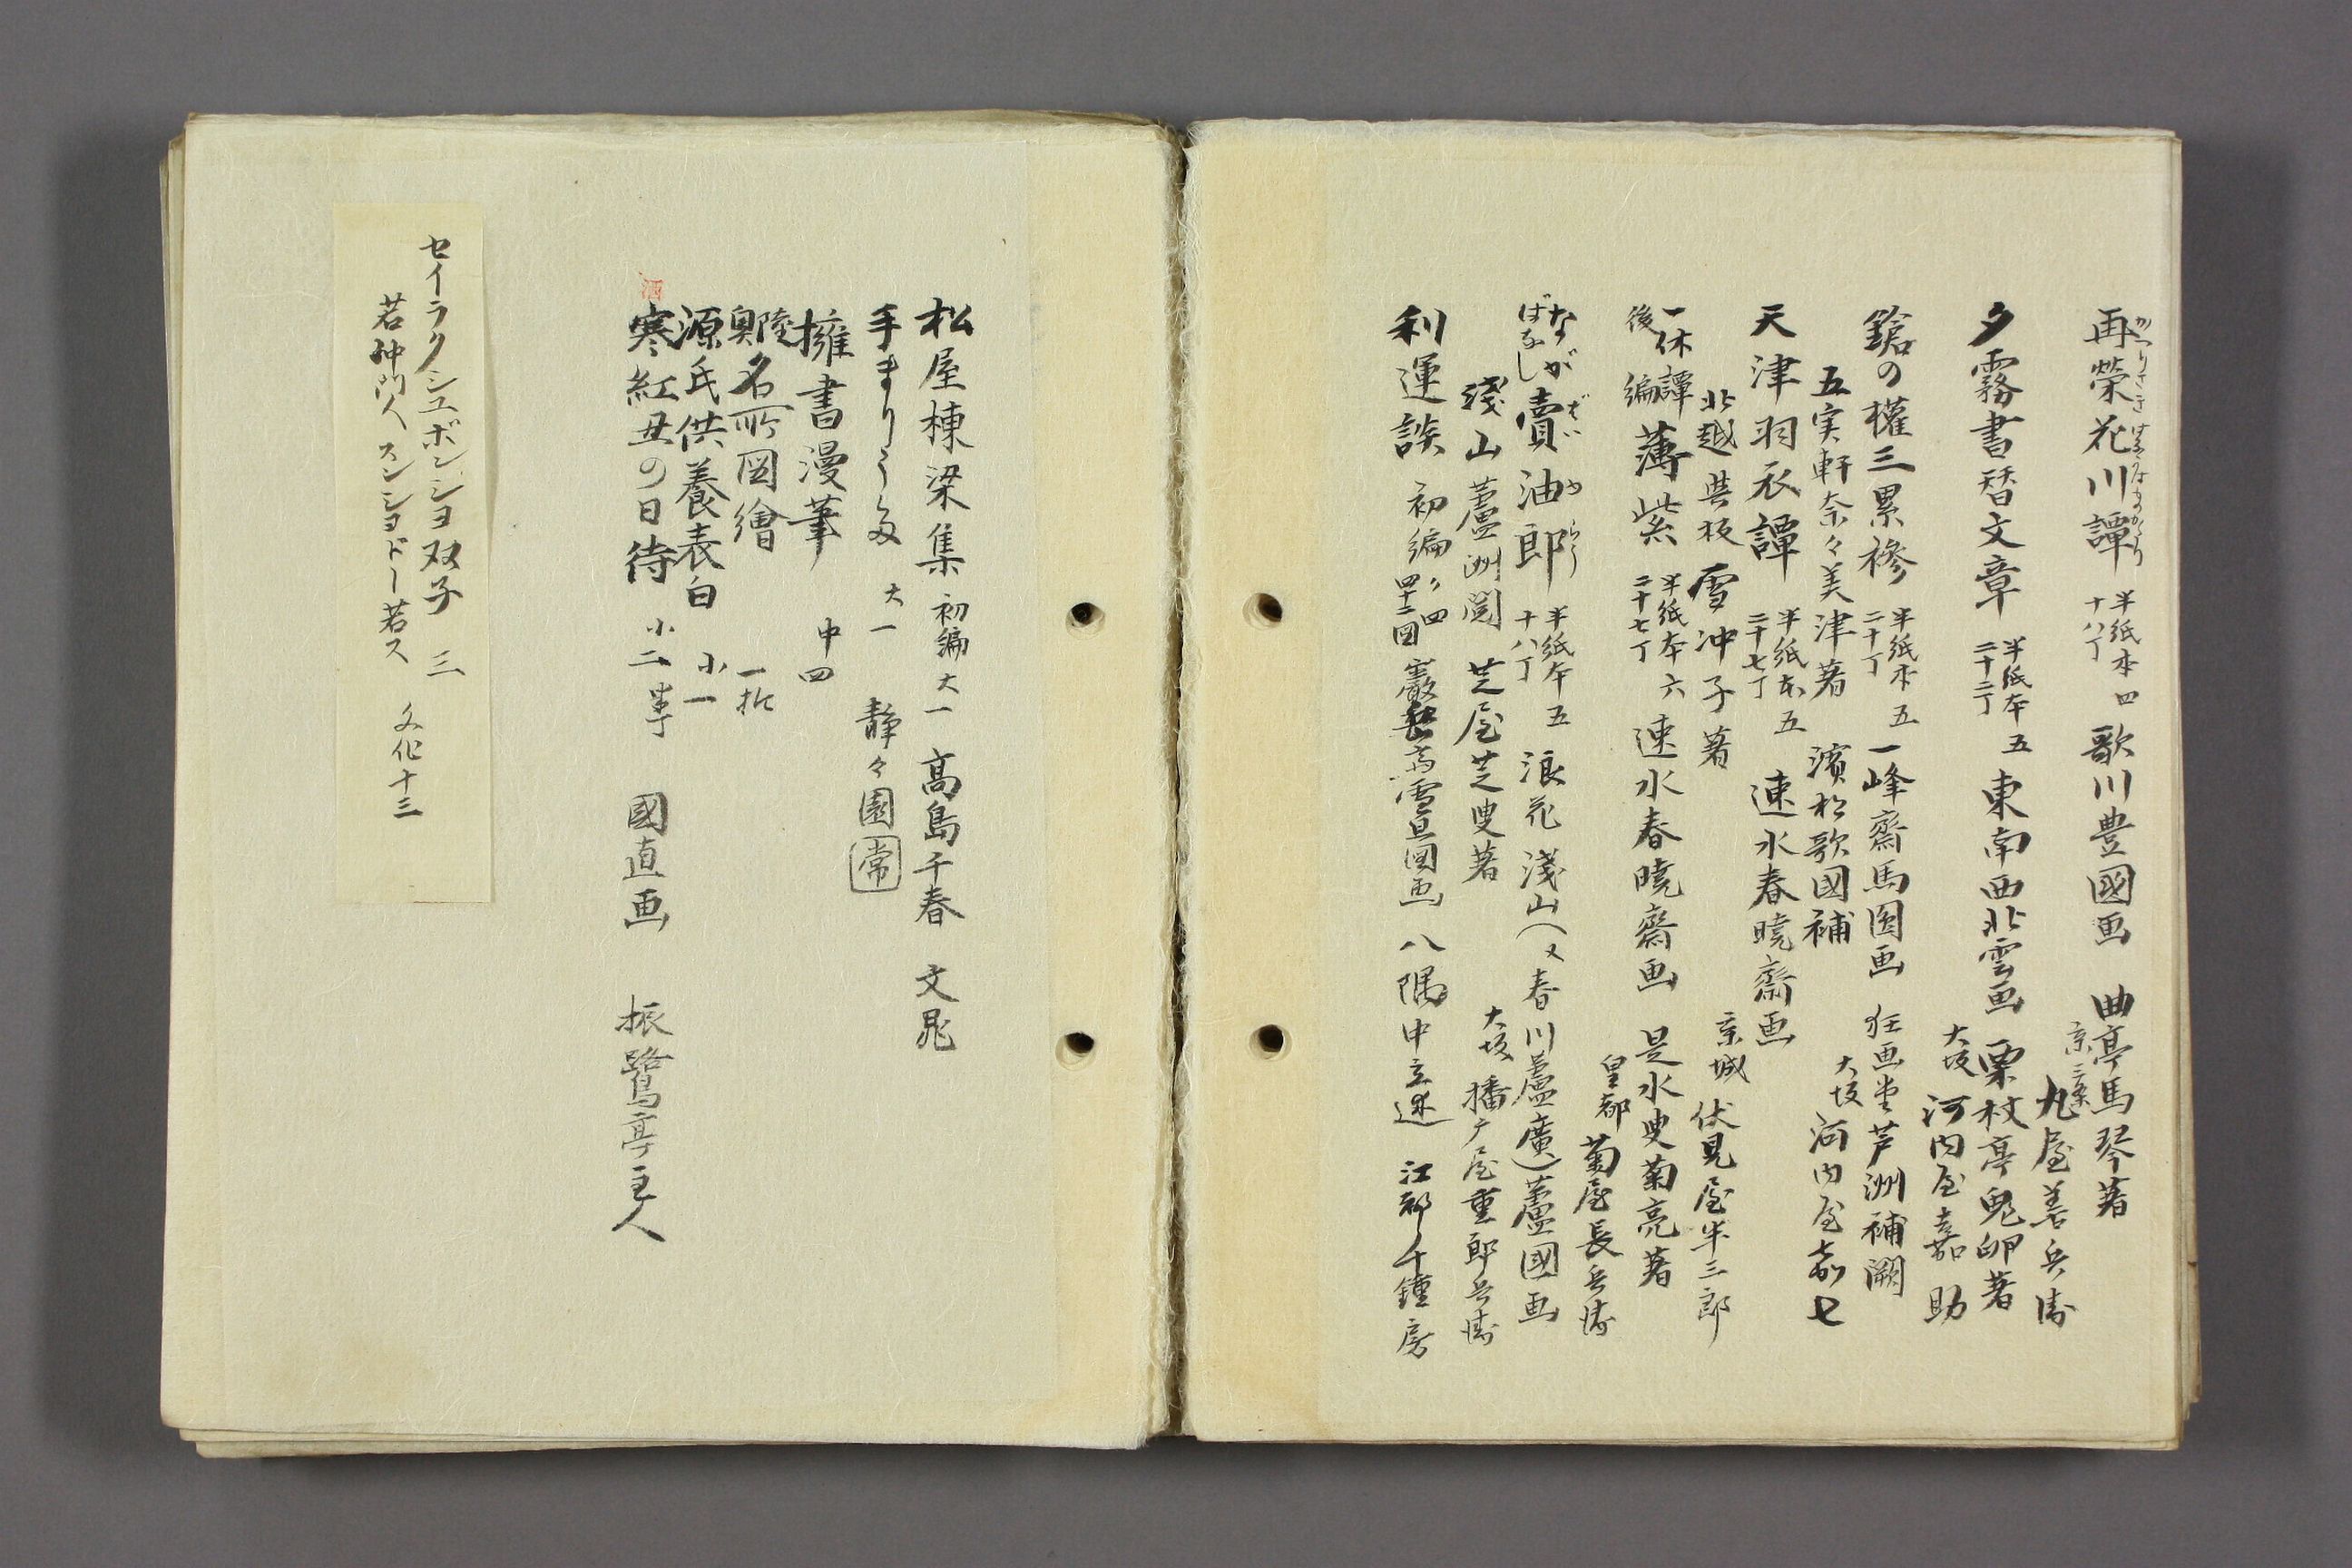 再榮花川譚 半紙本四 十八丁 歌川豊國画 曲亭馬琴著
京三条 丸屋善兵衛
夕霧書替文章 半紙本五 二十二丁 東南西北雲画 栗杖亭鬼卵著
大坂 河内屋嘉助
鎗の權三累褂 半紙本五 二十丁 一峰齋馬圓画 狂画堂芦洲補潤
五実軒奈々美津著 濱松歌國補 大坂 河内屋嘉七
天津羽衣譚 半紙本五 二十七丁 速水春曉齋画
北越 無板 雪沖子著 京城 伏見屋半三郎
一休譚後編 薄紫 半紙本六 二十七丁 速水春曉齋画 是水叟菊亮著
皇都 菊屋長兵衛
ながばなし 賣油郎 半紙本五 十八丁 浪花 淺山(又春川蘆廣)蘆國画
淺山蘆洲閲 芝屋芝叟著 大坂 播广屋重郎兵衛
利運談 初編 四 四十二図 嚴岳斎雪旦図画 八隅中立述 江都 千鐘房
松屋棟梁集 初編 大一 高島千春 文晁
手まりうた 大一 静々園 常
擁書漫筆 中四
陸奧名所図繪 一折
源氏供養表白 小一
寒紅丑の日待 小二 國直画 振鷺亭主人
セイラクシユボンシヨ双子 三
若沖門人 スンシヨドー若ス 文化十三